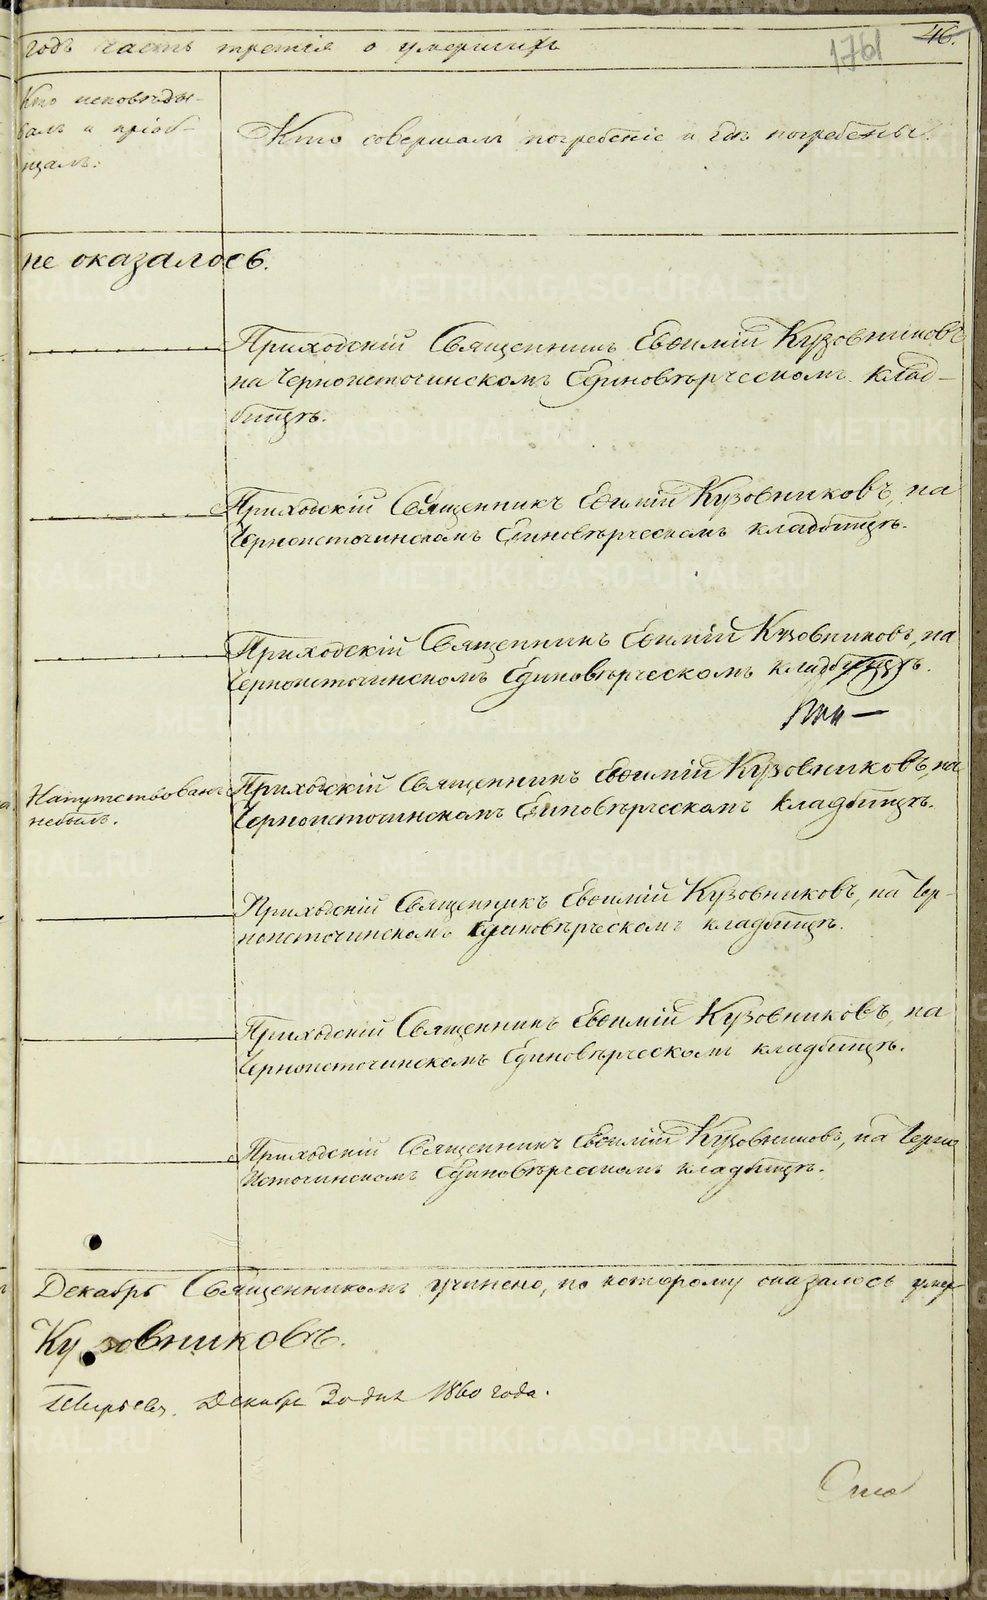 годъ часть третія о умершихъ
46.
1761
Кто исповѣды-
валъ и пріоб-
щалъ:
Кто совершалъ погребеніе и гдѣ погребены.
не оказалось.
Приходскій Священникъ Евѳимій Кузовниковъ
на Черноисточинскомъ Единовѣрческомъ клад-
бищѣ.
Приходскій Священникъ Евѳимій Кузовниковъ, на
Черноисточинскомъ Единовѣрческомъ кладбищѣ.
Приходскій Священникъ Евѳимій Кузовниковъ, на
Черноисточинскомъ Единовѣрческомъ кладбищѣ.
Напутствованъ
небылъ.
Приходскій Священникъ Евѳимій Кузовниковъ, на
Черноисточинскомъ Единовѣрческомъ кладбищѣ.
Приходскій Священникъ Евѳимій Кузовниковъ, на Чер-
ноисточинскомъ Единовѣрческомъ кладбищѣ.
Приходскій Священникъ Евѳимій Кузовниковъ, на
Черноисточинскомъ Единовѣрческомъ кладбищѣ.
Приходскій Священникъ Евѳимій Кузовниковъ, на Черно
источинскомъ Единовѣрческомъ кладбищѣ.
Декабрь Священникомъ учинено, по которому оказалось умер-
Кузовниковъ.
Декабря 30 дня 1860 года.
METRIKI.GASO-URAL.RU